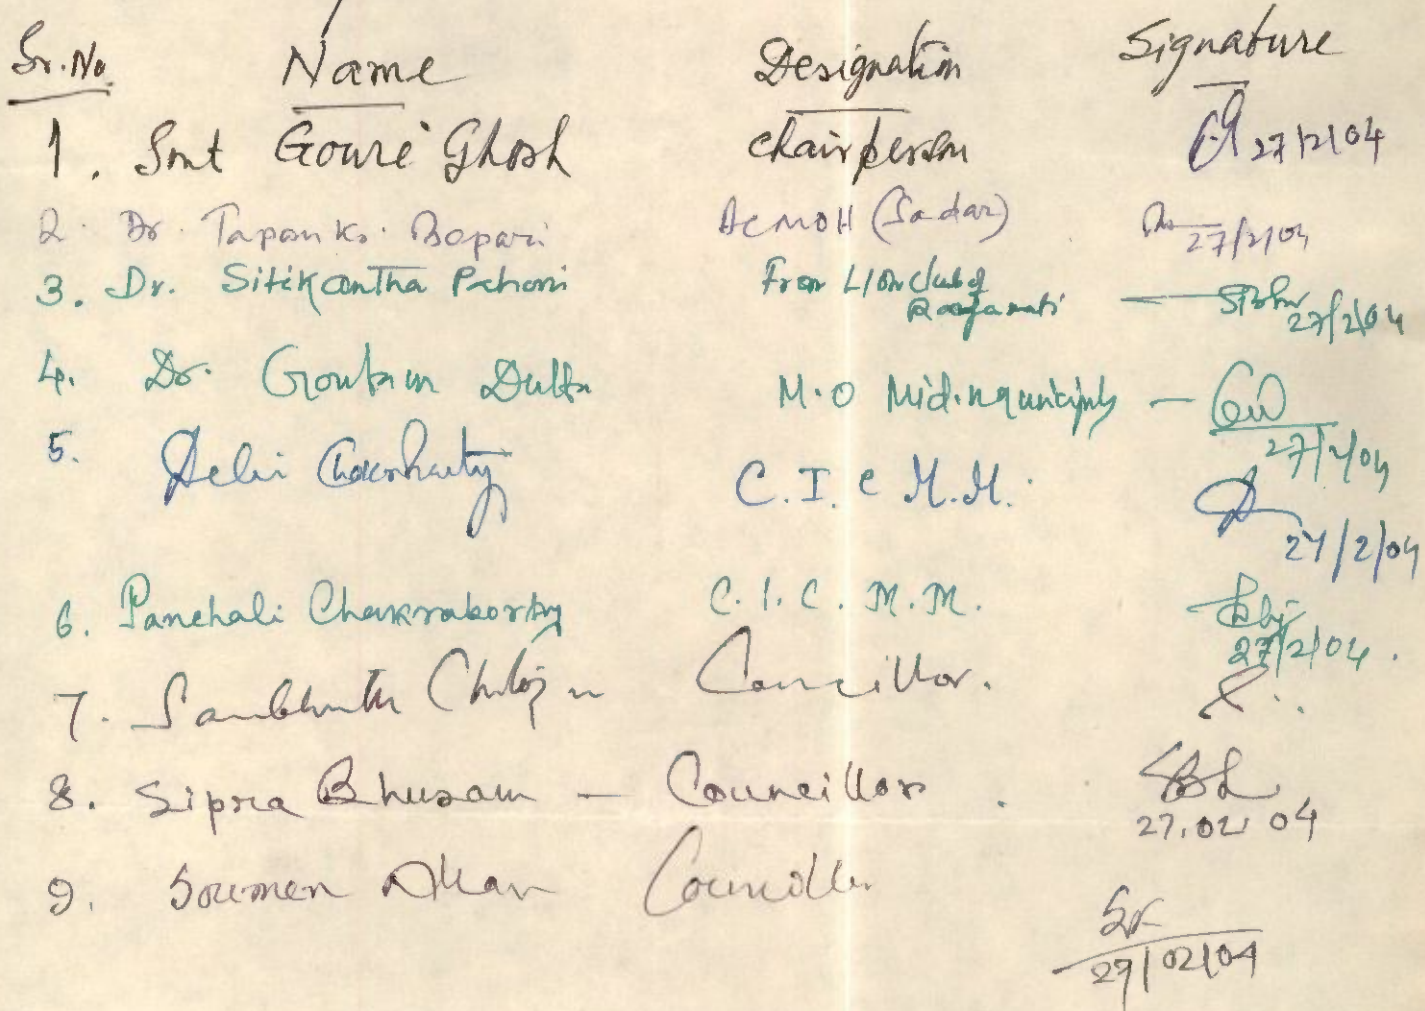 Sr. No. Name Designation Signature
1. Smt Gouri Ghosh Chairperson 27/2/04
2. Dr. Tapan Kr. Bapari ACMOH (Sadar) 27/2/04
3. Dr. Sitikantha Pahari From Lion Club of Rangamati 27/2/04
4. Dr. Goutam Dutta M.O Mid. 27/2/04
5. Debi Chakraborty C.I.C M.M. 27/2/04
6. Panchali Chakraborty C.I.C. M.M. 27/2/04.
7. Councillor.
8. Sipra Bhusan — Councillor 27.02 04
9. Soumen Councillor 27/02/04